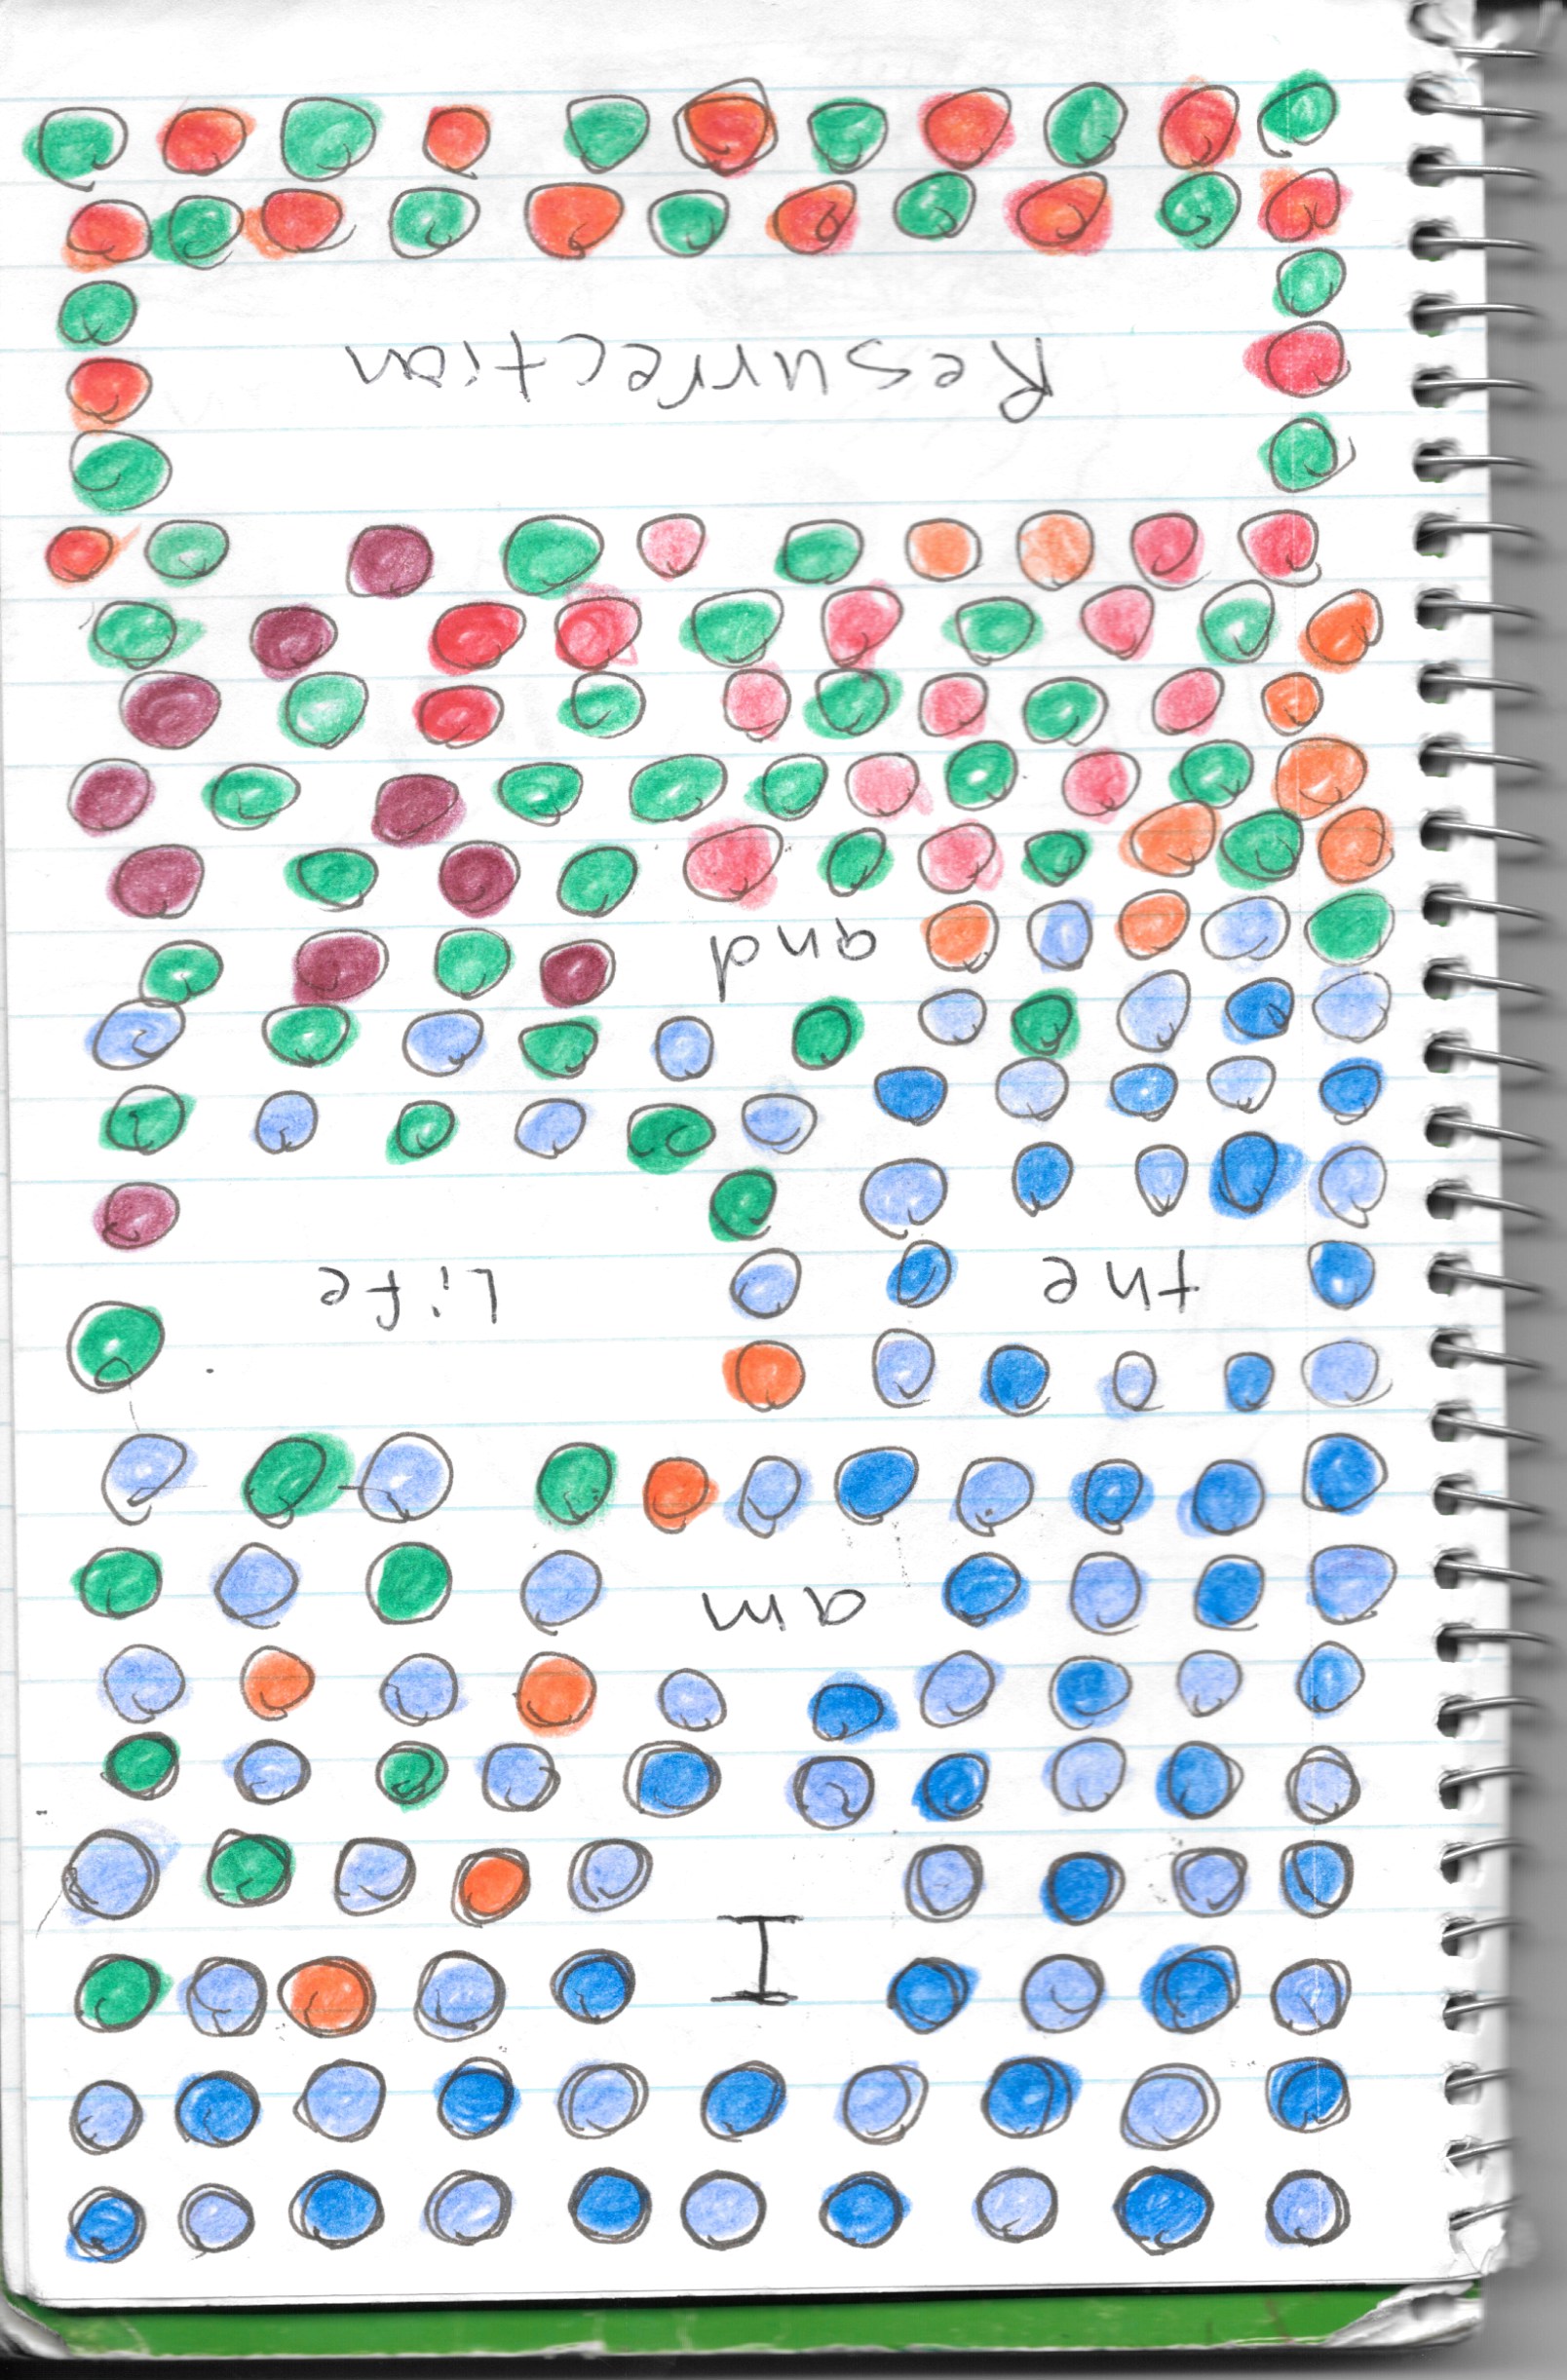 I
am
the
Life
and
Resurrection